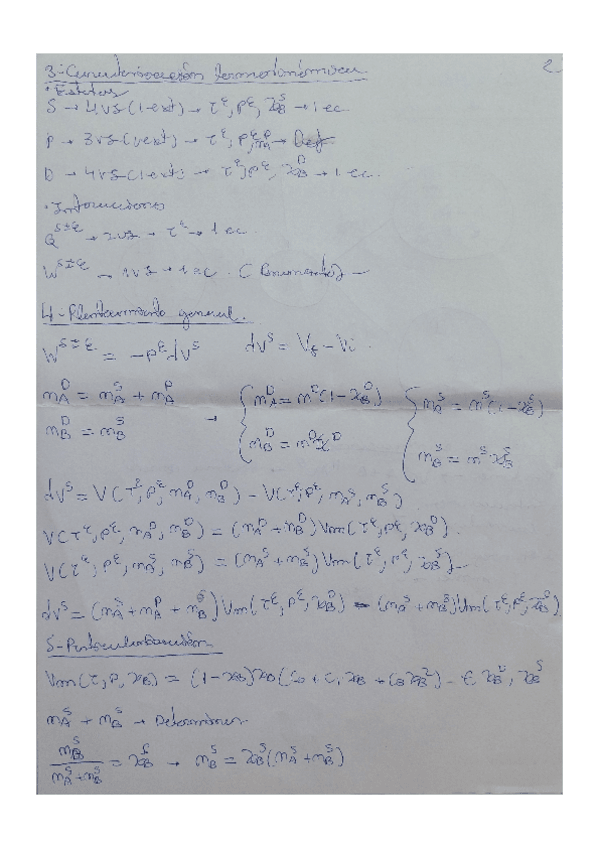 3.- Caracterización termodinámica. 2.
· Estados
S → 4 vs (1 ext) → τ^ε, p^ε, x_B^S → 1 ec.
P → 3 vs (1 ext) → τ^ε, p^ε, m_A^P →
D → 4 vs (1 ext) → τ^ε, p^ε, x_B^D → 1 ec.
· Interacciones
Q^{S±ε} → 2 vs → τ^ε → 1 ec.
W^{S±ε} → 1 vs → 1 ec.
4.- Planteamiento general.
W^{S±ε} = -p^ε dV^S dV^S = V_f - V_i.
m_A^D = m_A^S + m_A^P → { m_A^D = m^D (1-x_B^D) { m_A^S = m^S (1-x_B^S)
m_B^D = m_B^S m_B^D = m^D x^D m_B^S = m^S x_B^S
dV^S = V(τ^ε, p^ε, m_A^D, m_B^D) - V(τ^ε, p^ε, m_A^S, m_B^S)
V(τ^ε, p^ε, m_A^D, m_B^D) = (m_A^D + m_B^D) Vm(τ^ε, p^ε, x_B^D).
V(τ^ε, p^ε, m_A^S, m_B^S) = (m_A^S + m_B^S) Vm(τ^ε, p^ε, x_B^S).
dV^S = (m_A^S + m_A^P + m_B^S) Vm(τ^ε, p^ε, x_B^D) - (m_A^S + m_B^S) Vm(τ^ε, p^ε, x_B^S)
5.- Particularización
Vm(τ, p, x_B) = (1-x_B) x_B (C_0 + C_1 x_B + C_B x_B^2) - x_B^D, x_B^S
m_A^S + m_B^S → Determinar
m_B^S / (m_A^S + m_B^S) = x_B^S → m_B^S = x_B^S (m_A^S + m_B^S)